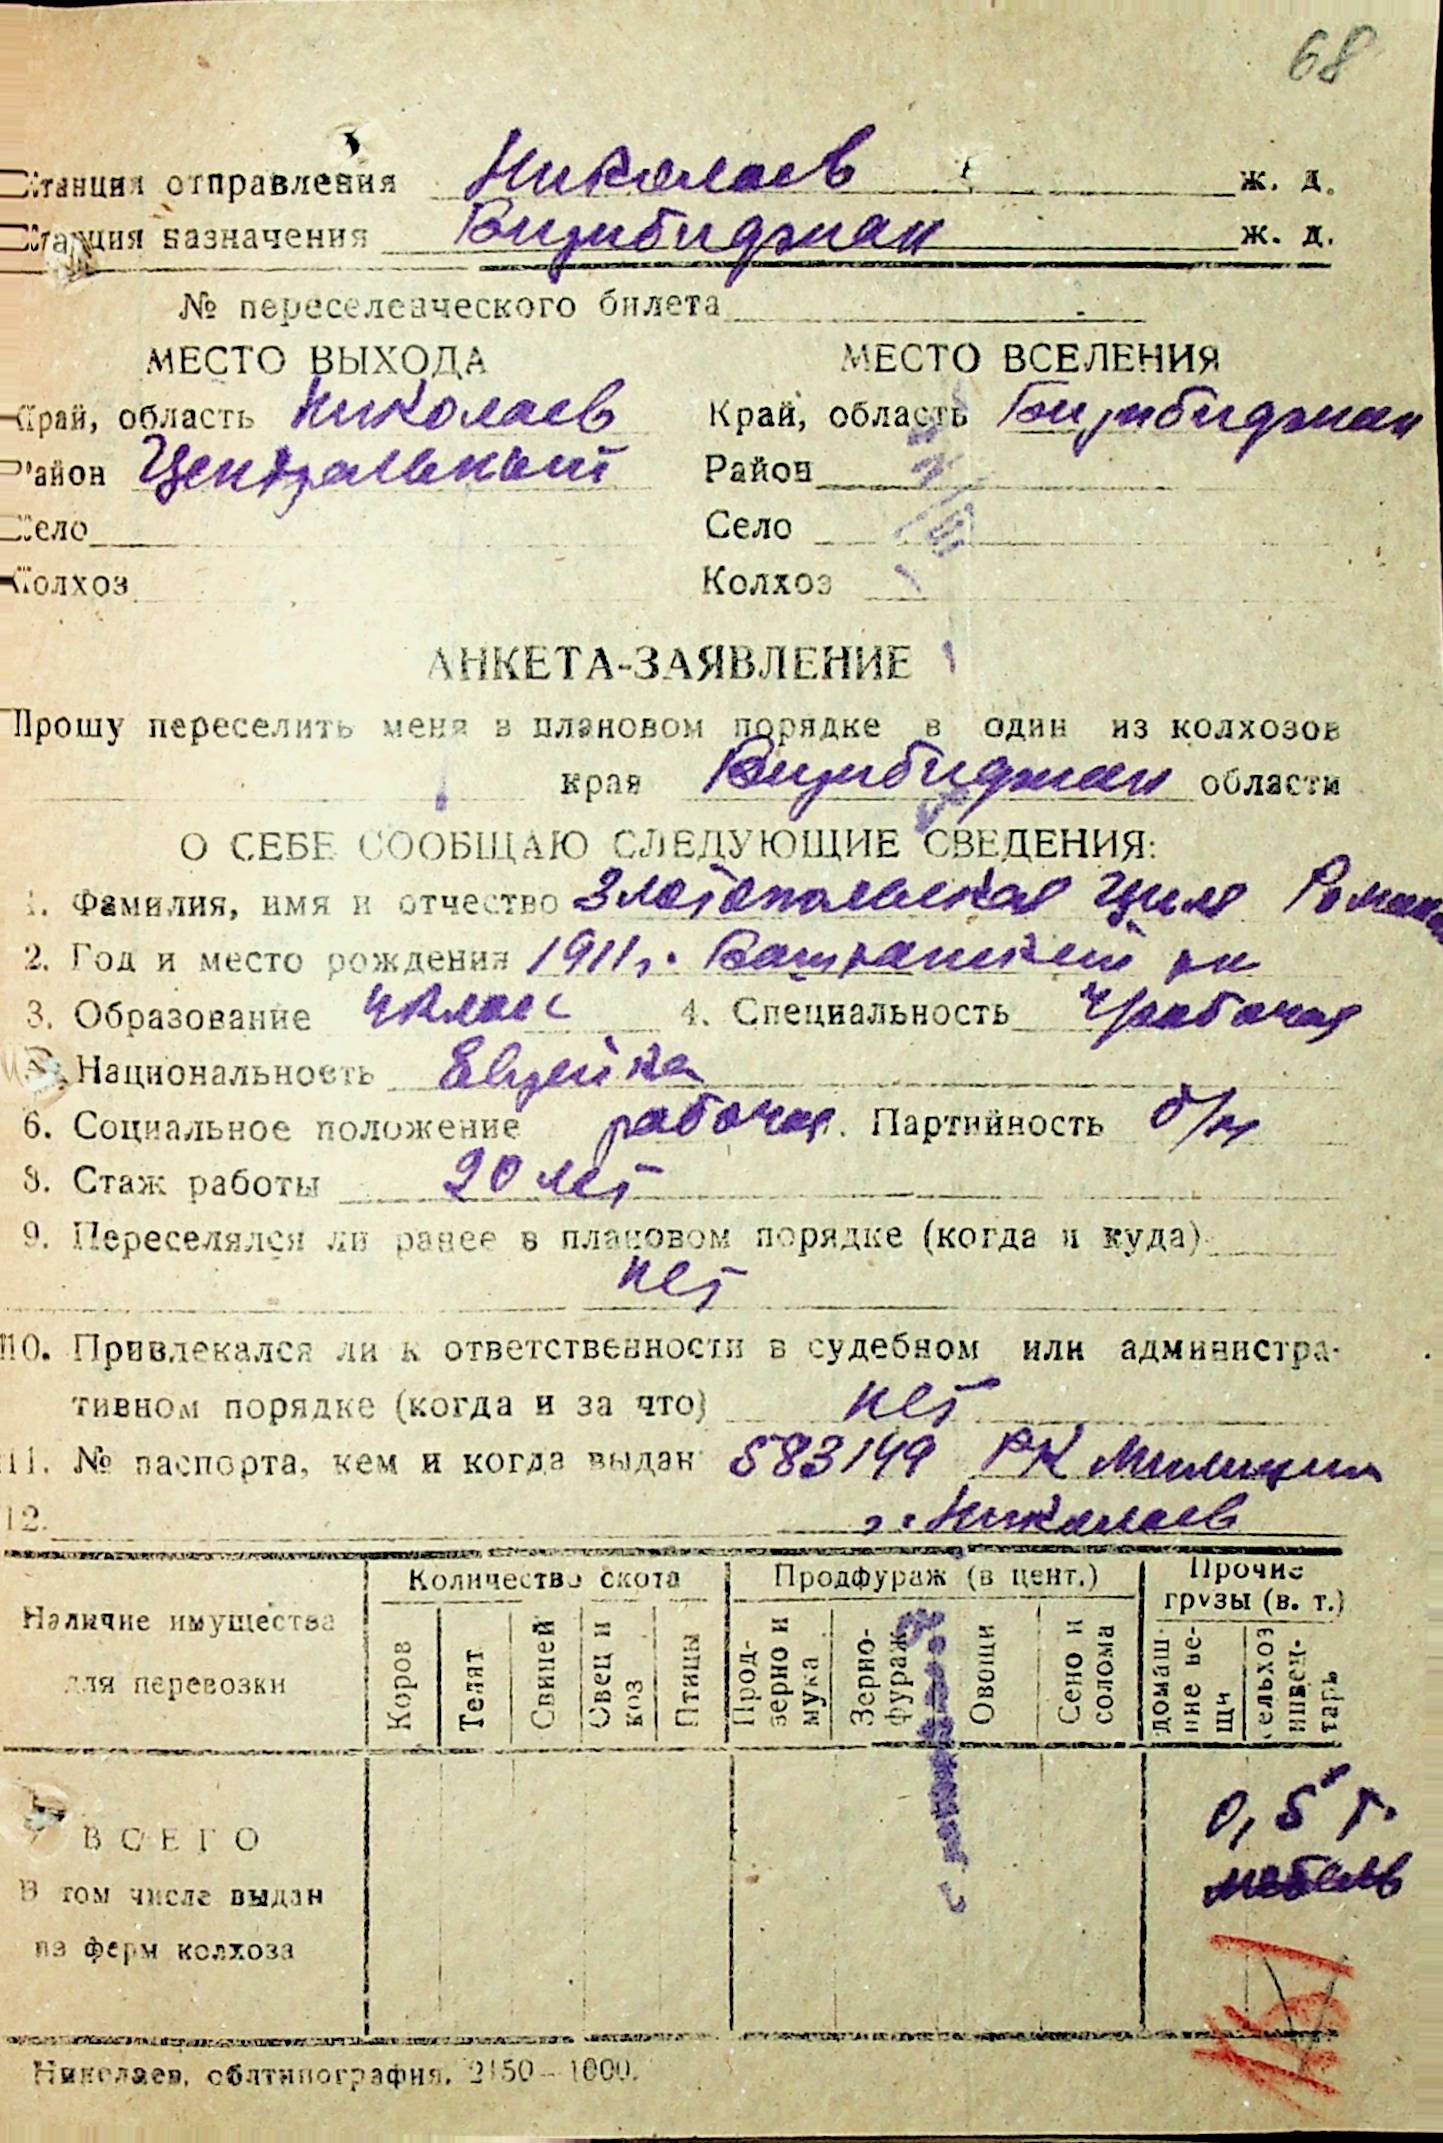 68
Станция отправления Николаев ж. д.
Станция назначения Биробиджан ж. д.
№ переселенческого билета
МЕСТО ВЫХОДА МЕСТО ВСЕЛЕНИЯ
Край, область Николаев Край, область Биробиджан
Район Центральный Район
Село Село
Колхоз Колхоз
АНКЕТА-ЗАЯВЛЕНИЕ
Прошу переселить меня в плановом порядке в один из колхозов
края Биробиджан области
О СЕБЕ СООБЩАЮ СЛЕДУЮЩИЕ СВЕДЕНИЯ:
1. Фамилия, имя и отчество Златопольская Циля Романо
2. Год и место рождения 1911 г. Баштанский рн
3. Образование 4 клас 4. Специальность Ч/рабочая
5. Национальность Еврейка
6. Социальное положение рабочая. Партийность б/п
8. Стаж работы 20 лет
9. Переселялся ли ранее в плановом порядке (когда и куда)
нет
10. Привлекался ли к ответственности в судебном или администра-
тивном порядке (когда и за что) нет
11. № паспорта, кем и когда выдан 583149 РК Милиции
12. г. Николаев
Наличие имущества для перевозки
Количество скота Продфураж (в цент.) Прочие грузы (в. т.)
Коров Телят Свиней Овец и коз Птицы Прод-зерно и мука Зерно-фураж Овощи Сено и солома домаш-ние ве-щи сельхоз инвен-тарь
ВСЕГО 0,5 т.
В том числе выдан мебель
из ферм колхоза
Николаев, облтипография. 2150—1000.